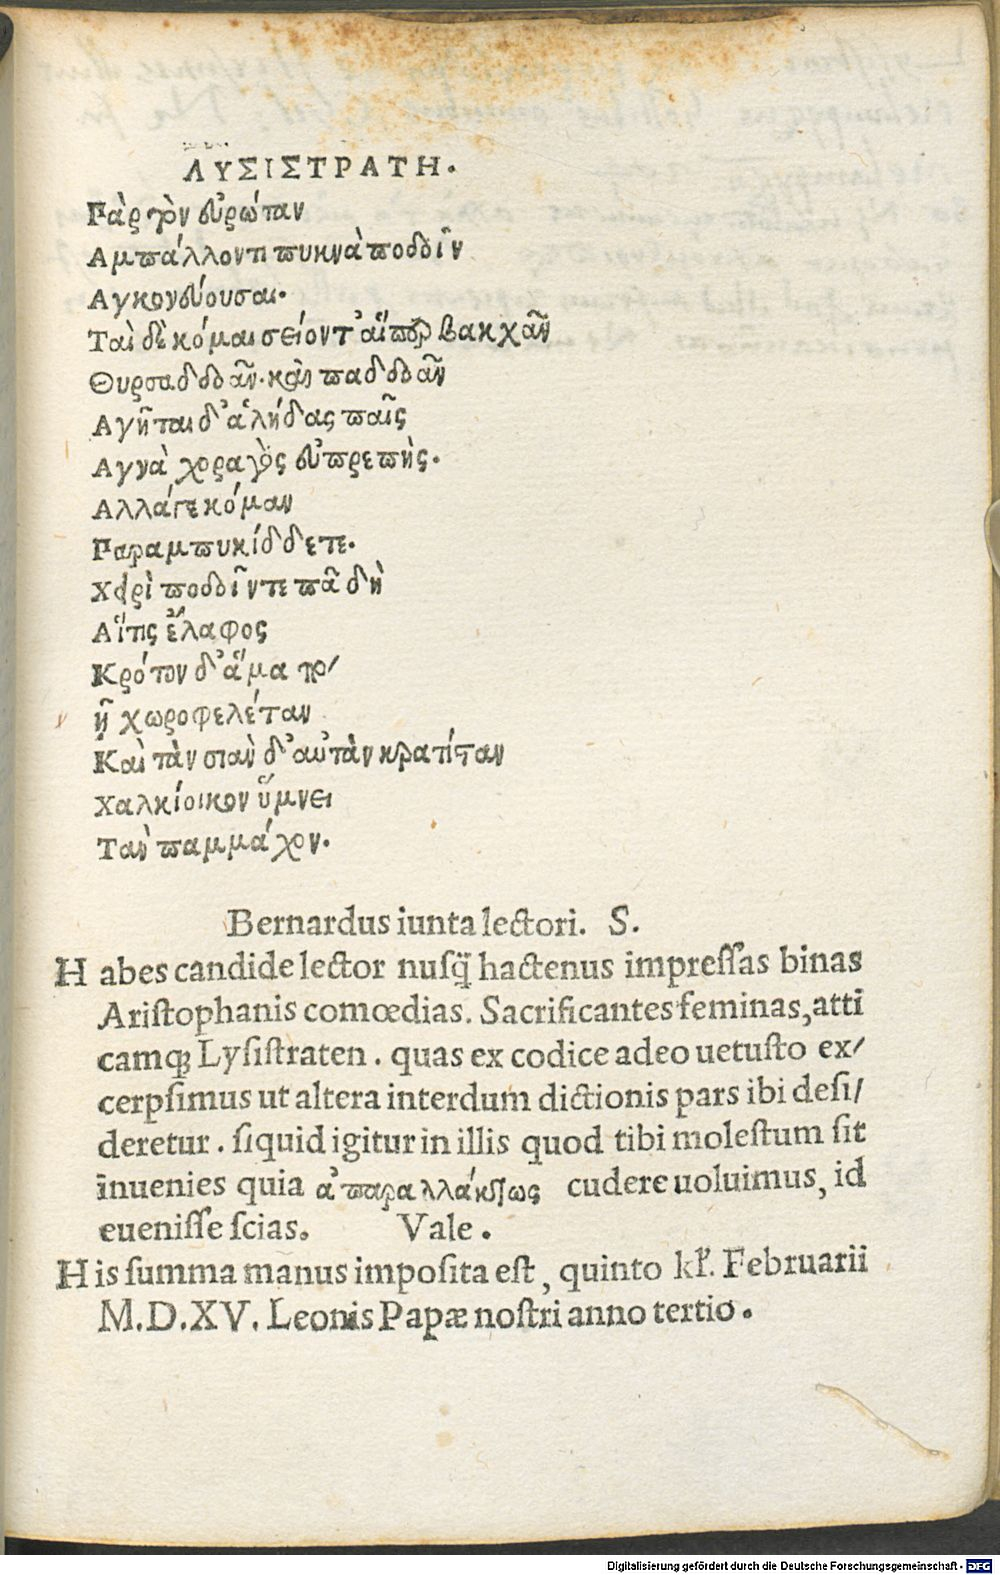 ΛΥΣΙΣΤΡΑΤΗ.
Γὰρ τὸν εὐρώταν
Αμπάλλοντι πυκνὰ ποδδῖν
Αγκονεύουσαι.
Ταὶ δὲ κόμαι σείοντ᾽ αἵπερ βακχᾶν
Θυρσαδδδᾶν. καὶ παδδδᾶν
Αγῆται δ᾽ ἁλήδας παῖς
Αγνὰ χοραγὸς εὐπρεπὴς.
Αλλάγε κόμαν
Παραμπυκίδδετε.
Χερὶ ποδδῖν τε πᾶ δὴ
Αἵτις ἔλαφος
Κρότον δ᾽ ἅμα
ῇ χωροφελέταν
Καὶ τὰν σιὰν δ᾽ αὐτὰν κρατίταν
Χαλκίοικον ὕμνει
Τὰν παμμάχον.
Bernardus iunta lectori. S.
H abes candide lector nusq̃ hactenus impressas binas
Aristophanis comœdias. Sacrificantes feminas, atti
camq; Lysistraten. quas ex codice adeo uetusto ex/
cerpsimus ut altera interdum dictionis pars ibi desi/
deretur. siquid igitur in illis quod tibi molestum sit
inuenies quia ἀπαραλλάκτως cudere uoluimus, id
euenisse scias. Vale.
H is summa manus imposita est, quinto kl'. Februarii
M.D.XV. Leonis Papæ nostri anno tertio.
Digitalisierung gefördert durch die Deutsche Forschungsgemeinschaft - DFG